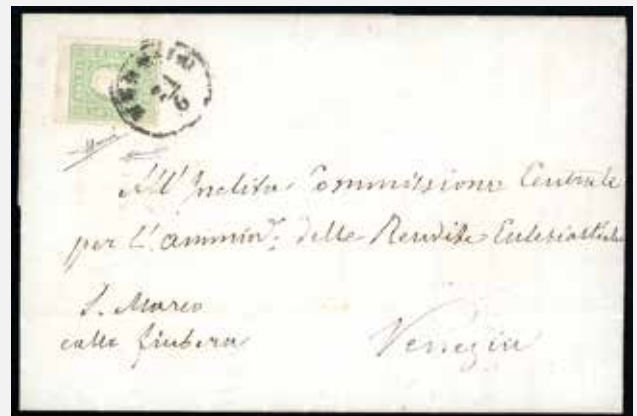 VENEZIA
7/6
All' Inclita Commissione Centrale
per l'ammin.e delle Rendite Ecclesiastiche
S. Marco
calle fiubera
Venezia